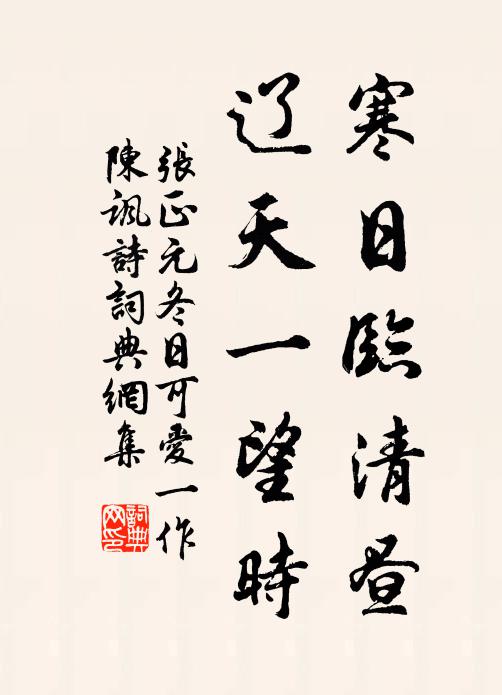 寒日臨清昼
辽天一望時
張正元冬日可愛一作
陳諷詩詞典網集
詞典网印